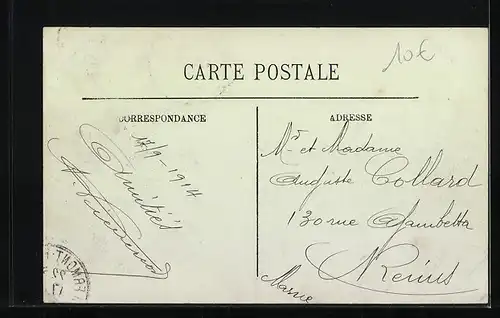 10€
CARTE POSTALE
CORRESPONDANCE
ADRESSE
17/9-1914
Amitiés
Mr et Madame
Auguste Collard
130 rue Gambetta
Reims
Marne